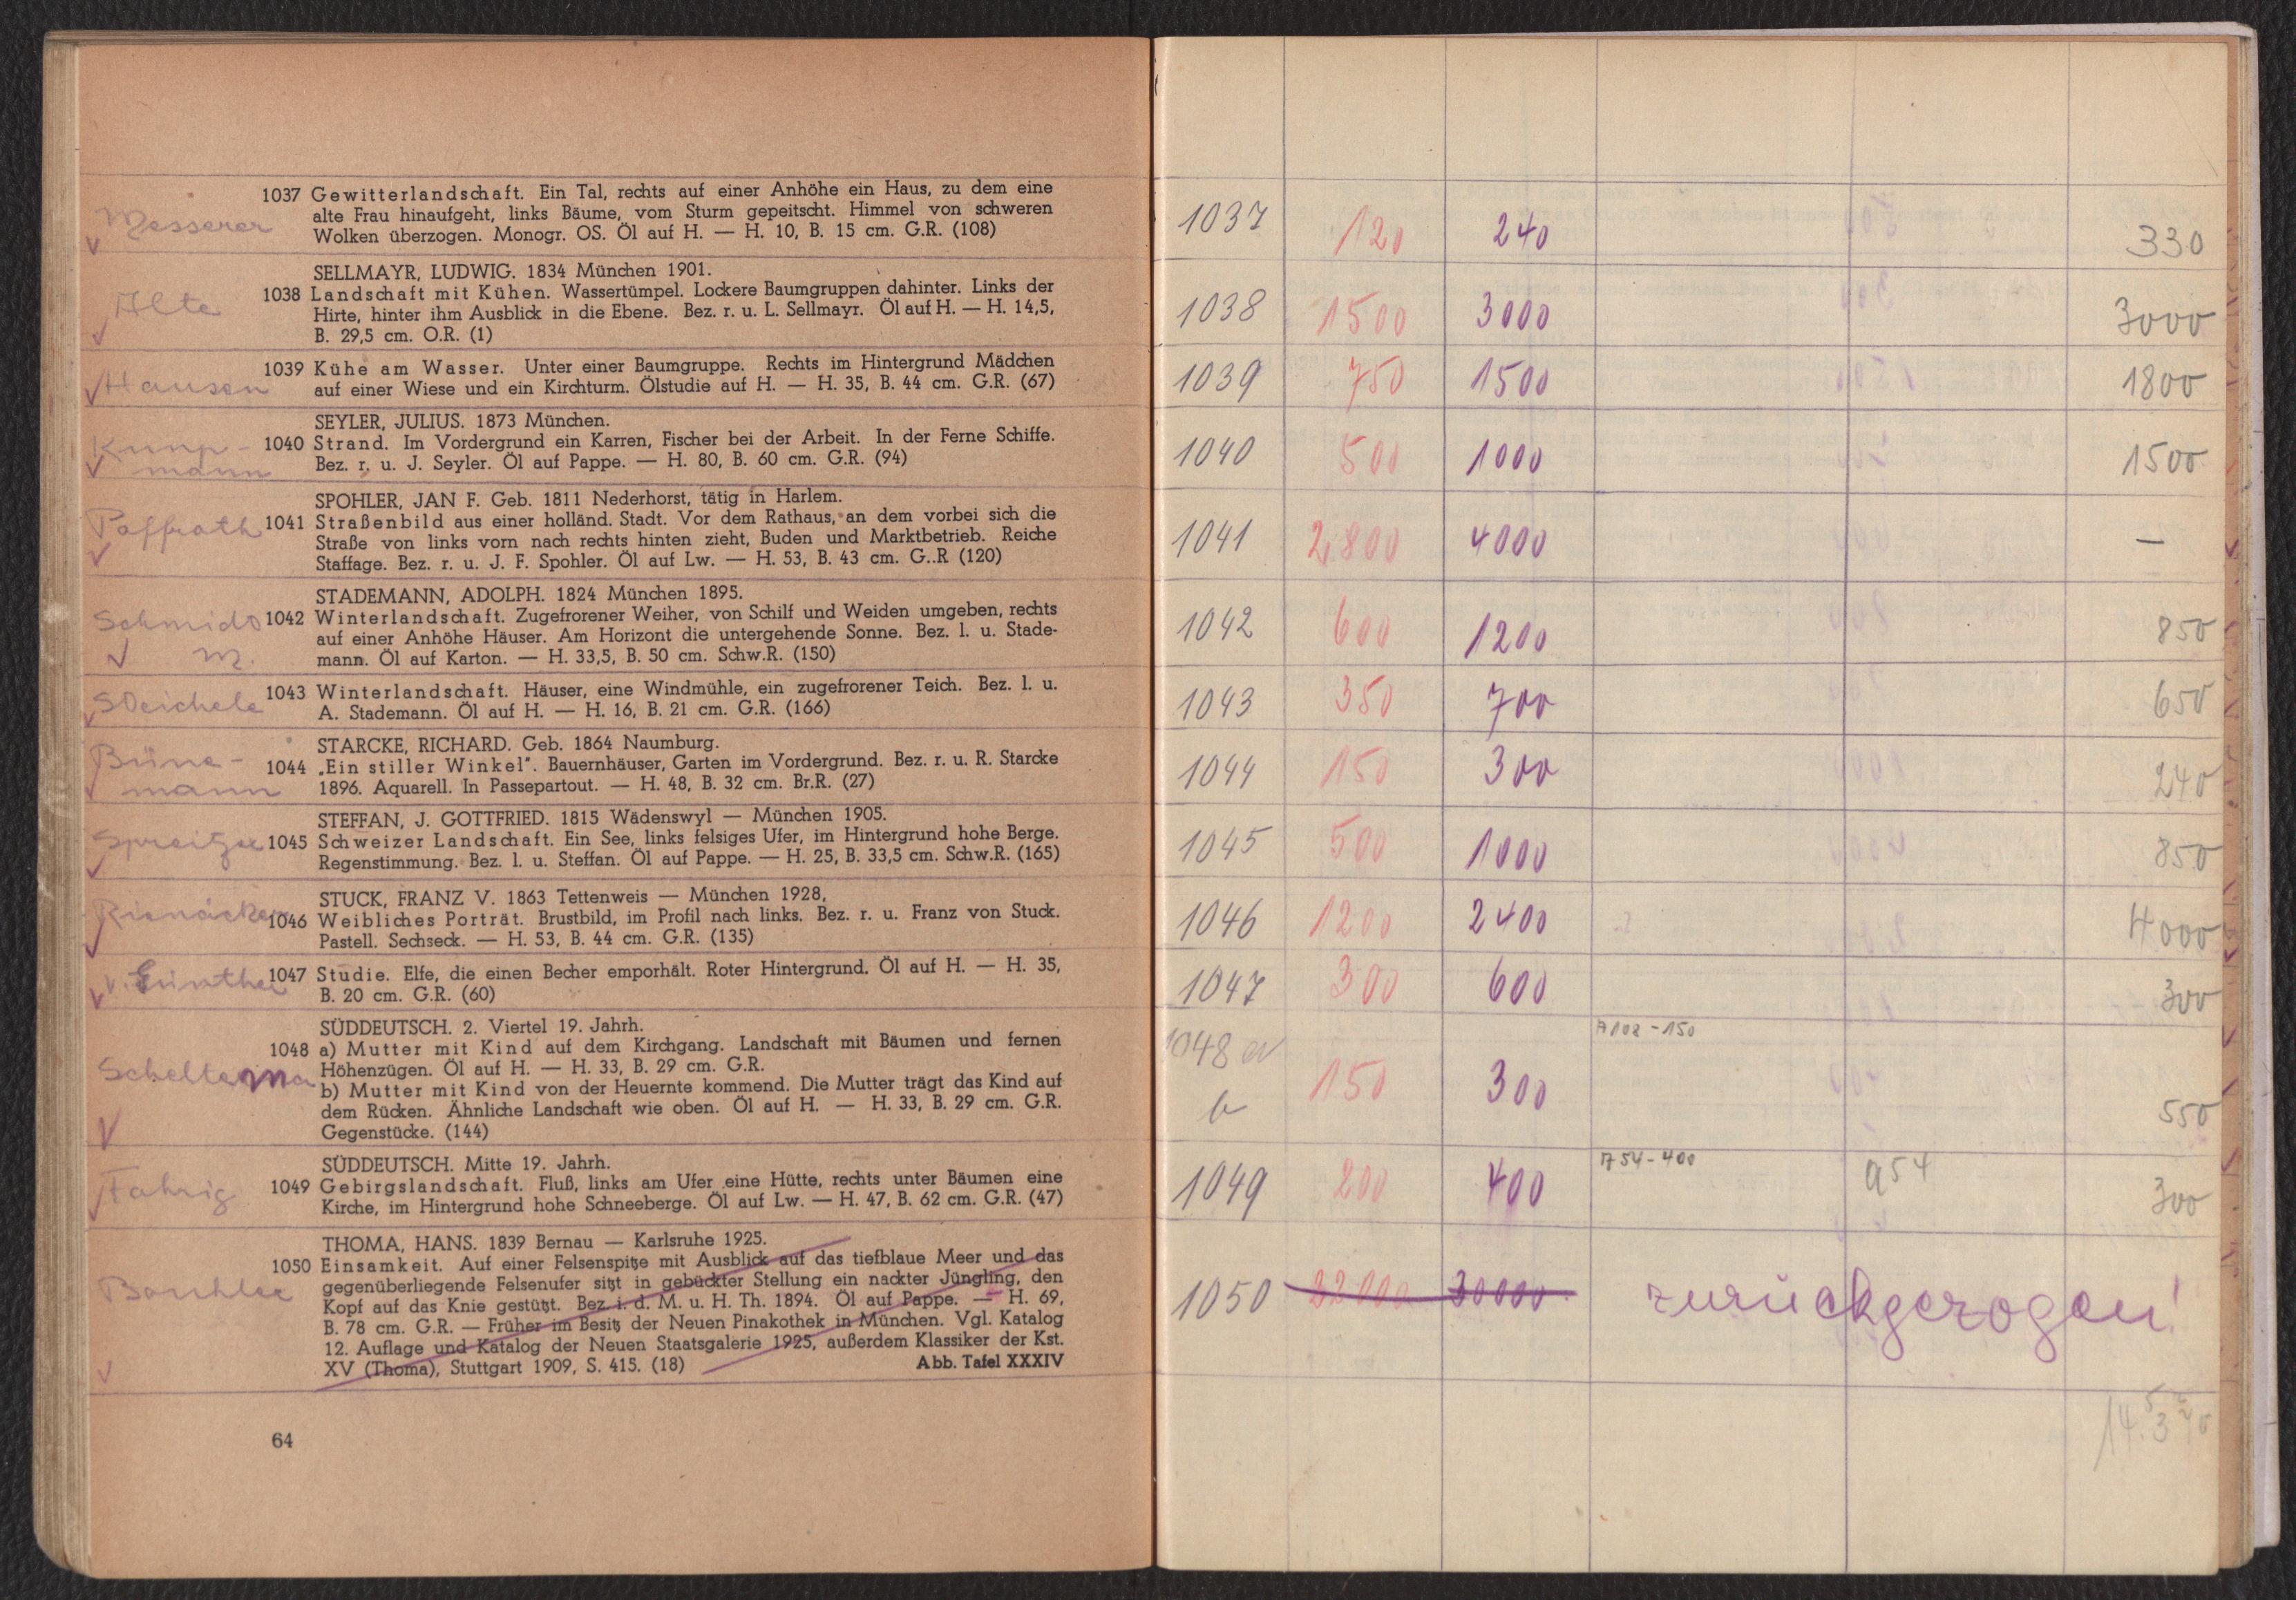 Messerer
1037 Gewitterlandschaft. Ein Tal, rechts auf einer Anhöhe ein Haus, zu dem eine
alte Frau hinaufgeht, links Bäume, vom Sturm gepeitscht. Himmel von schweren
Wolken überzogen. Monogr. OS. Öl auf H. — H. 10, B. 15 cm. G.R. (108)
SELLMAYR, LUDWIG. 1834 München 1901.
Alte
1038 Landschaft mit Kühen. Wassertümpel. Lockere Baumgruppen dahinter. Links der
Hirte, hinter ihm Ausblick in die Ebene. Bez. r. u. L. Sellmayr. Öl auf H. — H. 14,5,
B. 29,5 cm. O.R. (1)
Hausen
1039 Kühe am Wasser. Unter einer Baumgruppe. Rechts im Hintergrund Mädchen
auf einer Wiese und ein Kirchturm. Ölstudie auf H. — H. 35, B. 44 cm. G.R. (67)
SEYLER, JULIUS. 1873 München.
1040 Strand. Im Vordergrund ein Karren, Fischer bei der Arbeit. In der Ferne Schiffe.
mann
Bez. r. u. J. Seyler. Öl auf Pappe. — H. 80, B. 60 cm. G.R. (94)
SPOHLER, JAN F. Geb. 1811 Nederhorst, tätig in Harlem.
Paffrath
1041 Straßenbild aus einer holländ. Stadt. Vor dem Rathaus, an dem vorbei sich die
Straße von links vorn nach rechts hinten zieht, Buden und Marktbetrieb. Reiche
Staffage. Bez. r. u. J. F. Spohler. Öl auf Lw. — H. 53, B. 43 cm. G..R (120)
STADEMANN, ADOLPH. 1824 München 1895.
Schmidt
1042 Winterlandschaft. Zugefrorener Weiher, von Schilf und Weiden umgeben, rechts
auf einer Anhöhe Häuser. Am Horizont die untergehende Sonne. Bez. l. u. Stade-
M.
mann. Öl auf Karton. — H. 33,5, B. 50 cm. Schw.R. (150)
1043 Winterlandschaft. Häuser, eine Windmühle, ein zugefrorener Teich. Bez. l. u.
A. Stademann. Öl auf H. — H. 16, B. 21 cm. G.R. (166)
STARCKE, RICHARD. Geb. 1864 Naumburg.
Büne-
1044 „Ein stiller Winkel". Bauernhäuser, Garten im Vordergrund. Bez. r. u. R. Starcke
mann
1896. Aquarell. In Passepartout. — H. 48, B. 32 cm. Br.R. (27)
STEFFAN, J. GOTTFRIED. 1815 Wädenswyl — München 1905.
1045 Schweizer Landschaft. Ein See, links felsiges Ufer, im Hintergrund hohe Berge.
Regenstimmung. Bez. l. u. Steffan. Öl auf Pappe. — H. 25, B. 33,5 cm. Schw.R. (165)
STUCK, FRANZ V. 1863 Tettenweis — München 1928,
1046 Weibliches Porträt. Brustbild, im Profil nach links. Bez. r. u. Franz von Stuck.
Pastell. Sechseck. — H. 53, B. 44 cm. G.R. (135)
v. Günther
1047 Studie. Elfe, die einen Becher emporhält. Roter Hintergrund. Öl auf H. — H. 35,
B. 20 cm. G.R. (60)
SÜDDEUTSCH. 2. Viertel 19. Jahrh.
1048 a) Mutter mit Kind auf dem Kirchgang. Landschaft mit Bäumen und fernen
Scheltema
Höhenzügen. Öl auf H. — H. 33, B. 29 cm. G.R.
b) Mutter mit Kind von der Heuernte kommend. Die Mutter trägt das Kind auf
dem Rücken. Ähnliche Landschaft wie oben. Öl auf H. — H. 33, B. 29 cm. G.R.
Gegenstücke. (144)
SÜDDEUTSCH. Mitte 19. Jahrh.
Fahrig
1049 Gebirgslandschaft. Fluß, links am Ufer eine Hütte, rechts unter Bäumen eine
Kirche, im Hintergrund hohe Schneeberge. Öl auf Lw. — H. 47, B. 62 cm. G.R. (47)
THOMA, HANS. 1839 Bernau — Karlsruhe 1925.
1050 Einsamkeit. Auf einer Felsenspitze mit Ausblick auf das tiefblaue Meer und das
gegenüberliegende Felsenufer sitzt in gebückter Stellung ein nackter Jüngling, den
Kopf auf das Knie gestützt. Bez. i. d. M. u. H. Th. 1894. Öl auf Pappe. — H. 69,
B. 78 cm. G.R. — Früher im Besitz der Neuen Pinakothek in München. Vgl. Katalog
12. Auflage und Katalog der Neuen Staatsgalerie 1925, außerdem Klassiker der Kst.
XV (Thoma), Stuttgart 1909, S. 415. (18) Abb. Tafel XXXIV
64
1037 120 240 330
1038 1500 3000 3000
1039 750 1500 1800
1040 500 1000 1500
1041 2,800 4000 —
1042 600 1200 850
1043 350 700 650
1044 150 300 240
1045 500 1000 850
1046 1200 2400 4000
1047 300 600 300
1048 a
b 150 300 A 102 - 150 550
1049 200 400 A 54 - 400 a 54 300
1050 30000 zurückgezogen!